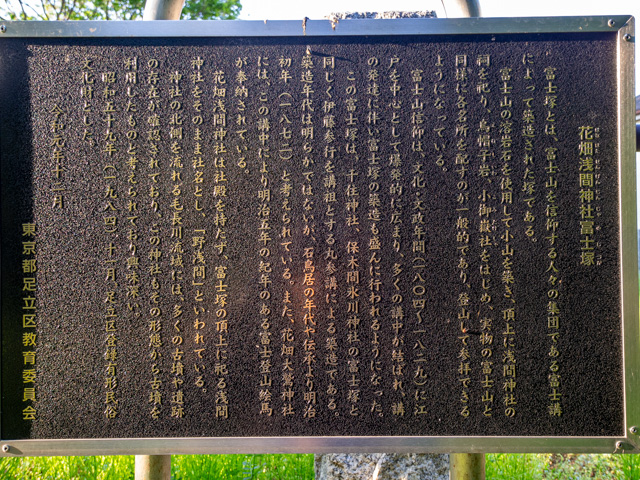 花畑浅間神社富士塚
はなはたせんげんじんじゃふじづか
富士塚とは、富士山を信仰する人々の集団である富士講
によって築造された塚である。
富士山の溶岩石を使用して小山を築き、頂上に浅間神社の
祠を祀り、烏帽子岩、小御嶽社をはじめ、実物の富士山と
同様に各名所を配すのが一般的であり、登山して参拝できる
ようになっている。
富士山信仰は、文化・文政年間（一八〇四～一八二九）に江
戸を中心として爆発的に広まり、多くの講中が結ばれ、講
の発達に伴い富士塚の築造も盛んに行われるようになった。
この富士塚は、千住神社、保木間氷川神社の富士塚と
同じく伊藤参行を講祖とする丸参講による築造である。
築造年代は明らかではないが、石鳥居の年代や伝承より明治
初年（一八七二）と考えられている。また、花畑大鷲神社
には、この講中により明治五年の紀年のある富士登山絵馬
が奉納されている。
花畑浅間神社は社殿を持たず、富士塚の頂上に祀る浅間
神社をそのまま社名とし、「野浅間」といわれている。
神社の北側を流れる毛長川流域には、多くの古墳や遺跡
の存在が確認されており、この神社もその形態から古墳を
利用したものと考えられており興味深い。
昭和五十九年（一九八四）十一月 足立区登録有形民俗
文化財とした。
令和元年十二月
東京都足立区教育委員会